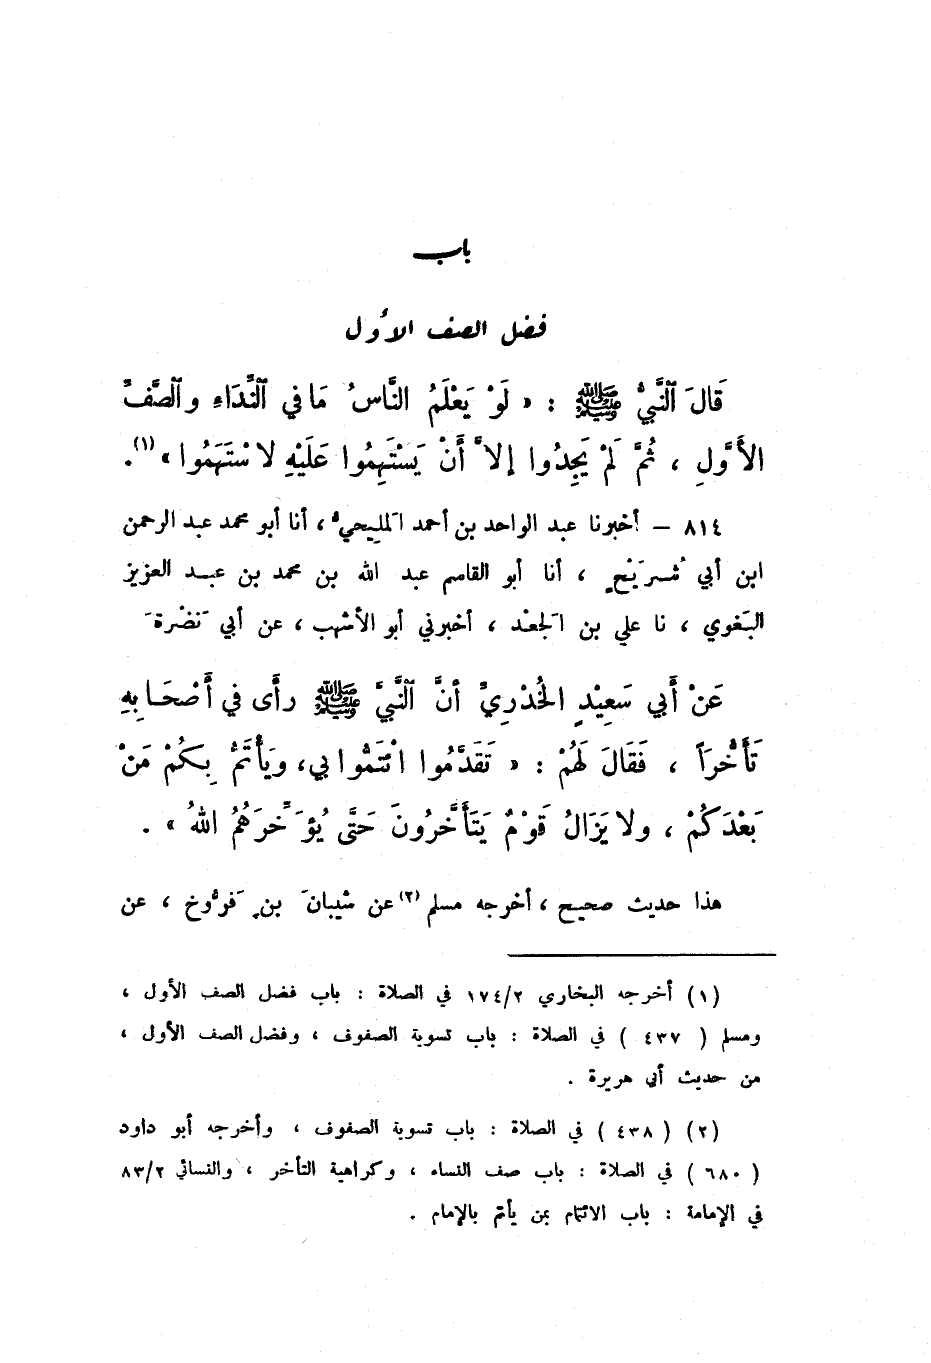 باب
فضل الصف الأول
قَالَ ٱلنَّبِيُّ ﷺ : « لَوْ يَعْلَمُ النَّاسُ مَا فِي ٱلنِّدَاءِ وٱلصَّفِّ
الأَوَّلِ ، ثُمَّ لَمْ يَجِدُوا إلاَّ أَنْ يَسْتَهِمُوا عَلَيْهِ لاسْتَهَمُوا »(١).
٨١٤ — أخبرنا عبد الواحد بن أحمد المَلِيحيُّ ، أنا أبو محمد عبد الرحمن
ابن أبي شُرَيْحٍ ، أنا أبو القاسم عبد الله بن محمد بن عبد العزيز
البَغوي ، نا علي بن الجَعْد ، أخبرني أبو الأشهب ، عن أبي نَضْرةَ
عَنْ أَبي سَعِيْدٍ الخُدْرِيِّ أنَّ ٱلنَّبِيَّ ﷺ رأَى في أَصْحَابِهِ
تَأَخُّرَاً ، فَقَالَ لَهُمْ : « تَقَدَّمُوا ائْتَمُّوا بي، ويَأْتَمُّ بِكُمْ مَنْ
بَعْدَكُمْ ، ولا يَزَالُ قَوْمٌ يَتَأَخَّرُونَ حَتَّى يُؤَخِّرَهُمُ اللهُ » .
هذا حديث صحيح ، أخرجه مسلم (٢) عن شيبانَ بنِ فَرُّوخ ، عن
(١) أخرجه البخاري ١٧٤/٢ في الصلاة : باب فضل الصف الأول ،
ومسلم ( ٤٣٧ ) في الصلاة : باب تسوية الصفوف ، وفضل الصف الأول ،
من حديث أبي هريرة .
(٢) ( ٤٣٨ ) في الصلاة : باب تسوية الصفوف ، وأخرجه أبو داود
( ٦٨٠ ) في الصلاة : باب صف النساء ، وكراهية التأخر ، والنسائي ٨٣/٢
في الإمامة : باب الائتمام بمن يأتم بالإمام .